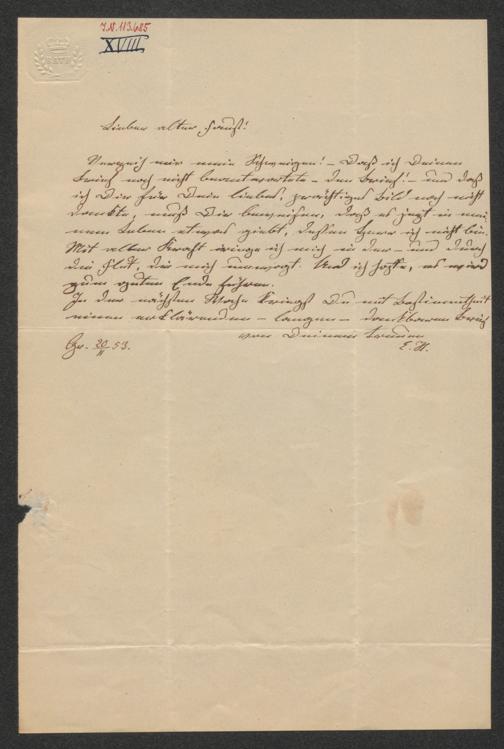 J.N. 113.685
XVIII
BATH
Lieber alter Faust!
Verzeih mir mein Schweigen! – Daß ich Deinen
Brief noch nicht beantwortete – den Brief! – und daß
ich Dir für Dein liebes, prächtiges Bild noch nicht
dankte, muß Dir beweisen, daß es jetzt in mei
nem Leben etwas giebt, dessen Herr ich nicht bin.
Mit aller Kraft ringe ich mich in der – und durch
die Flut, die mich umwogt. Und ich hoffe, es wird
zum guten Ende führen.
In der nächsten Woche kriegst Du mit Bestimmtheit
einen erklärenden – langen – dankbaren Brief
von Deinem treuen
E. H.
Gr. 20/II 53.